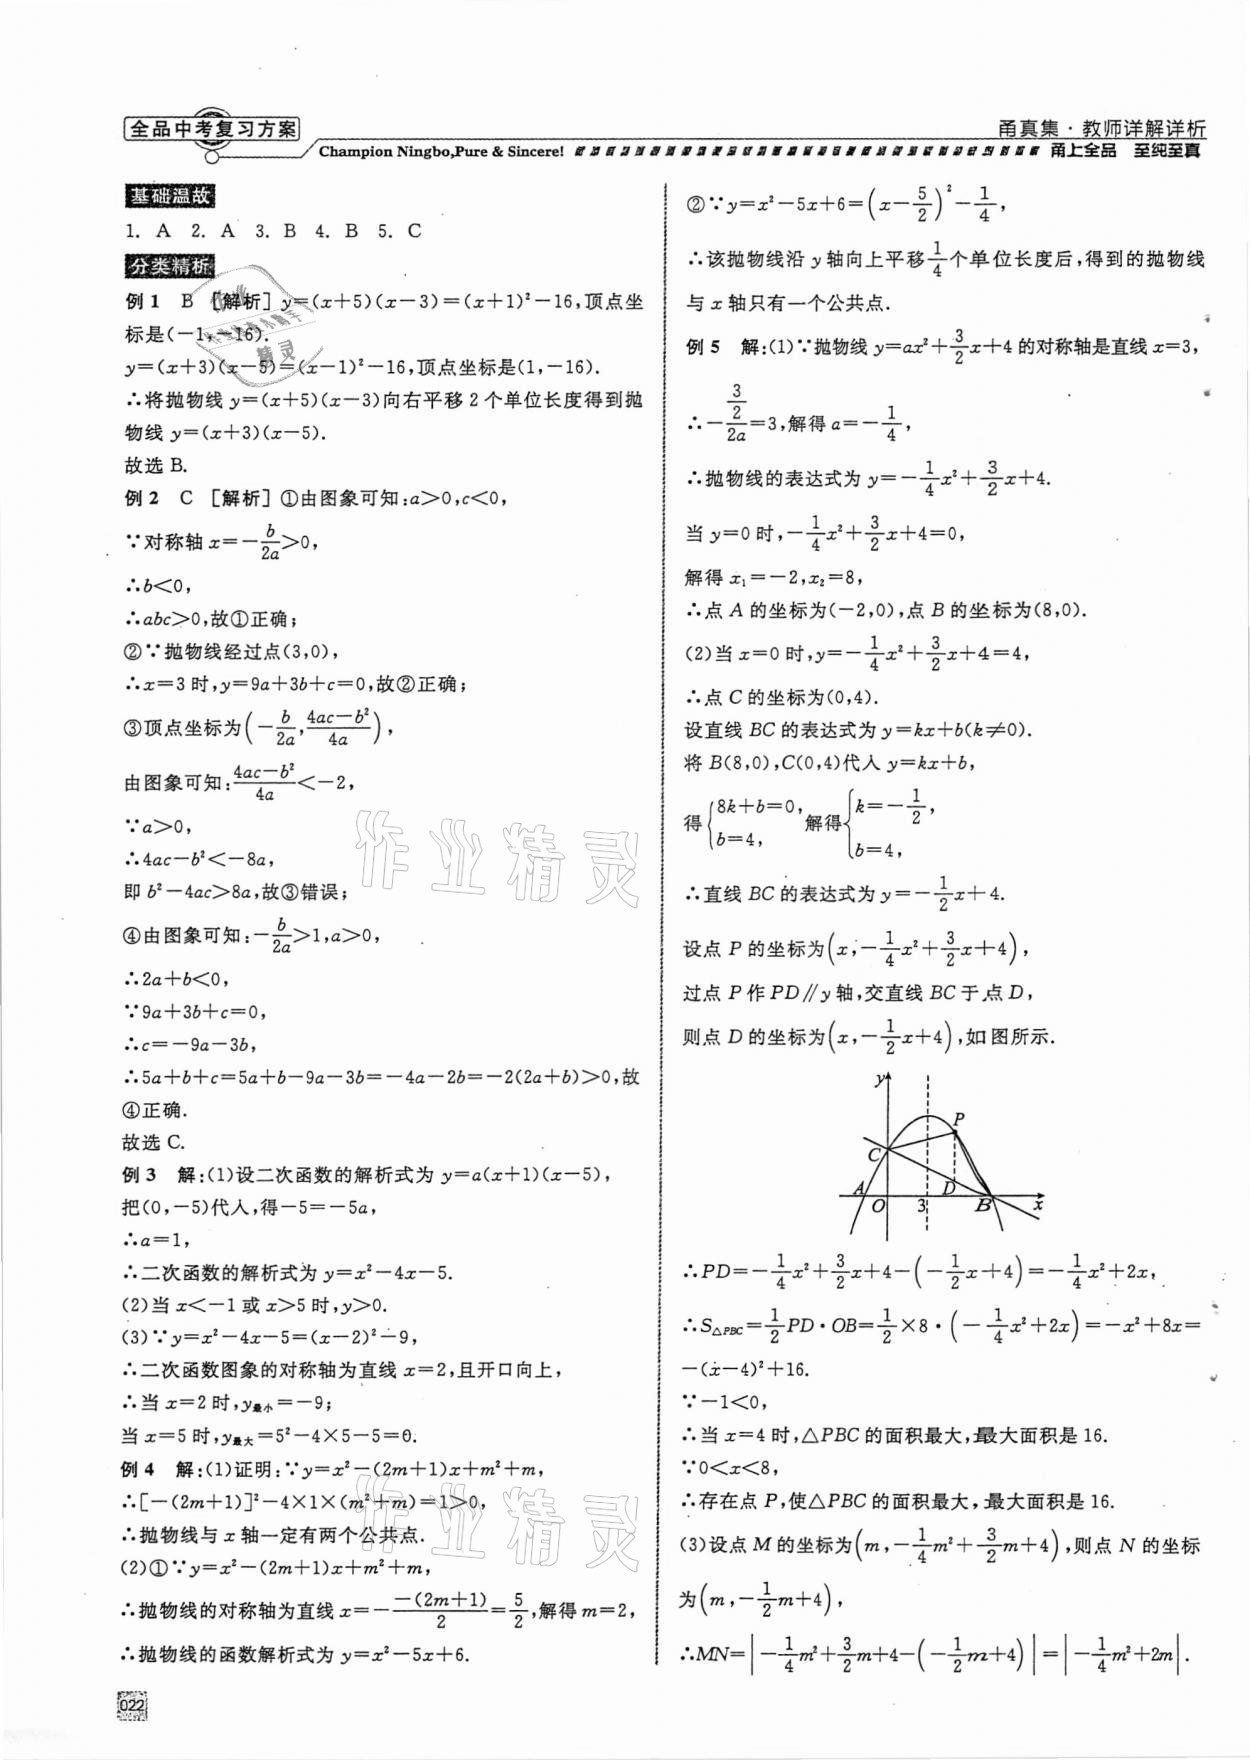 全品中考复习方案
甬真集·教师详解详析
Champion Ningbo,Pure & Sincere!
甬上全品 至纯至真
基础温故
1. A 2. A 3. B 4. B 5. C
分类精析
例 1 B [解析] y=(x+5)(x-3)=(x+1)²-16,顶点坐
标是(-1,-16).
y=(x+3)(x-5)=(x-1)²-16,顶点坐标是(1,-16).
∴将抛物线 y=(x+5)(x-3)向右平移 2 个单位长度得到抛
物线 y=(x+3)(x-5).
故选 B.
例 2 C [解析] ①由图象可知:a>0,c<0,
∵对称轴 x=-b/2a>0,
∴b<0,
∴abc>0,故①正确;
②∵抛物线经过点(3,0),
∴x=3 时,y=9a+3b+c=0,故②正确;
③顶点坐标为(-b/2a,(4ac-b²)/4a),
由图象可知:(4ac-b²)/4a<-2,
∵a>0,
∴4ac-b²<-8a,
即 b²-4ac>8a,故③错误;
④由图象可知:-b/2a>1,a>0,
∴2a+b<0,
∵9a+3b+c=0,
∴c=-9a-3b,
∴5a+b+c=5a+b-9a-3b=-4a-2b=-2(2a+b)>0,故
④正确.
故选 C.
例 3 解:(1)设二次函数的解析式为 y=a(x+1)(x-5),
把(0,-5)代入,得-5=-5a,
∴a=1,
∴二次函数的解析式为 y=x²-4x-5.
(2)当 x<-1 或 x>5 时,y>0.
(3)∵y=x²-4x-5=(x-2)²-9,
∴二次函数图象的对称轴为直线 x=2,且开口向上,
∴当 x=2 时,y最小=-9;
当 x=5 时,y最大=5²-4×5-5=0.
例 4 解:(1)证明:∵y=x²-(2m+1)x+m²+m,
∴[-(2m+1)]²-4×1×(m²+m)=1>0,
∴抛物线与 x 轴一定有两个公共点.
(2)①∵y=x²-(2m+1)x+m²+m,
∴抛物线的对称轴为直线 x=--(2m+1)/2=5/2,解得 m=2,
∴抛物线的函数解析式为 y=x²-5x+6.
②∵y=x²-5x+6=(x-5/2)²-1/4,
∴该抛物线沿 y 轴向上平移1/4个单位长度后,得到的抛物线
与 x 轴只有一个公共点.
例 5 解:(1)∵抛物线 y=ax²+3/2x+4 的对称轴是直线 x=3,
∴-(3/2)/2a=3,解得 a=-1/4,
∴抛物线的表达式为 y=-1/4x²+3/2x+4.
当 y=0 时,-1/4x²+3/2x+4=0,
解得 x₁=-2,x₂=8,
∴点 A 的坐标为(-2,0),点 B 的坐标为(8,0).
(2)当 x=0 时,y=-1/4x²+3/2x+4=4,
∴点 C 的坐标为(0,4).
设直线 BC 的表达式为 y=kx+b(k≠0).
将 B(8,0),C(0,4)代入 y=kx+b,
得{8k+b=0, b=4, 解得{k=-1/2, b=4,
∴直线 BC 的表达式为 y=-1/2x+4.
设点 P 的坐标为(x,-1/4x²+3/2x+4),
过点 P 作 PD∥y 轴,交直线 BC 于点 D,
则点 D 的坐标为(x,-1/2x+4),如图所示.
y
P
C
A D
O 3 B x
∴PD=-1/4x²+3/2x+4-(-1/2x+4)=-1/4x²+2x,
∴S△PBC=1/2PD·OB=1/2×8·(-1/4x²+2x)=-x²+8x=
-(x-4)²+16.
∵-1<0,
∴当 x=4 时,△PBC 的面积最大,最大面积是 16.
∵0<x<8,
∴存在点 P,使△PBC 的面积最大,最大面积是 16.
(3)设点 M 的坐标为(m,-1/4m²+3/2m+4),则点 N 的坐标
为(m,-1/2m+4),
∴MN=|-1/4m²+3/2m+4-(-1/2m+4)|=|-1/4m²+2m|.
022
作业精灵
作业精灵